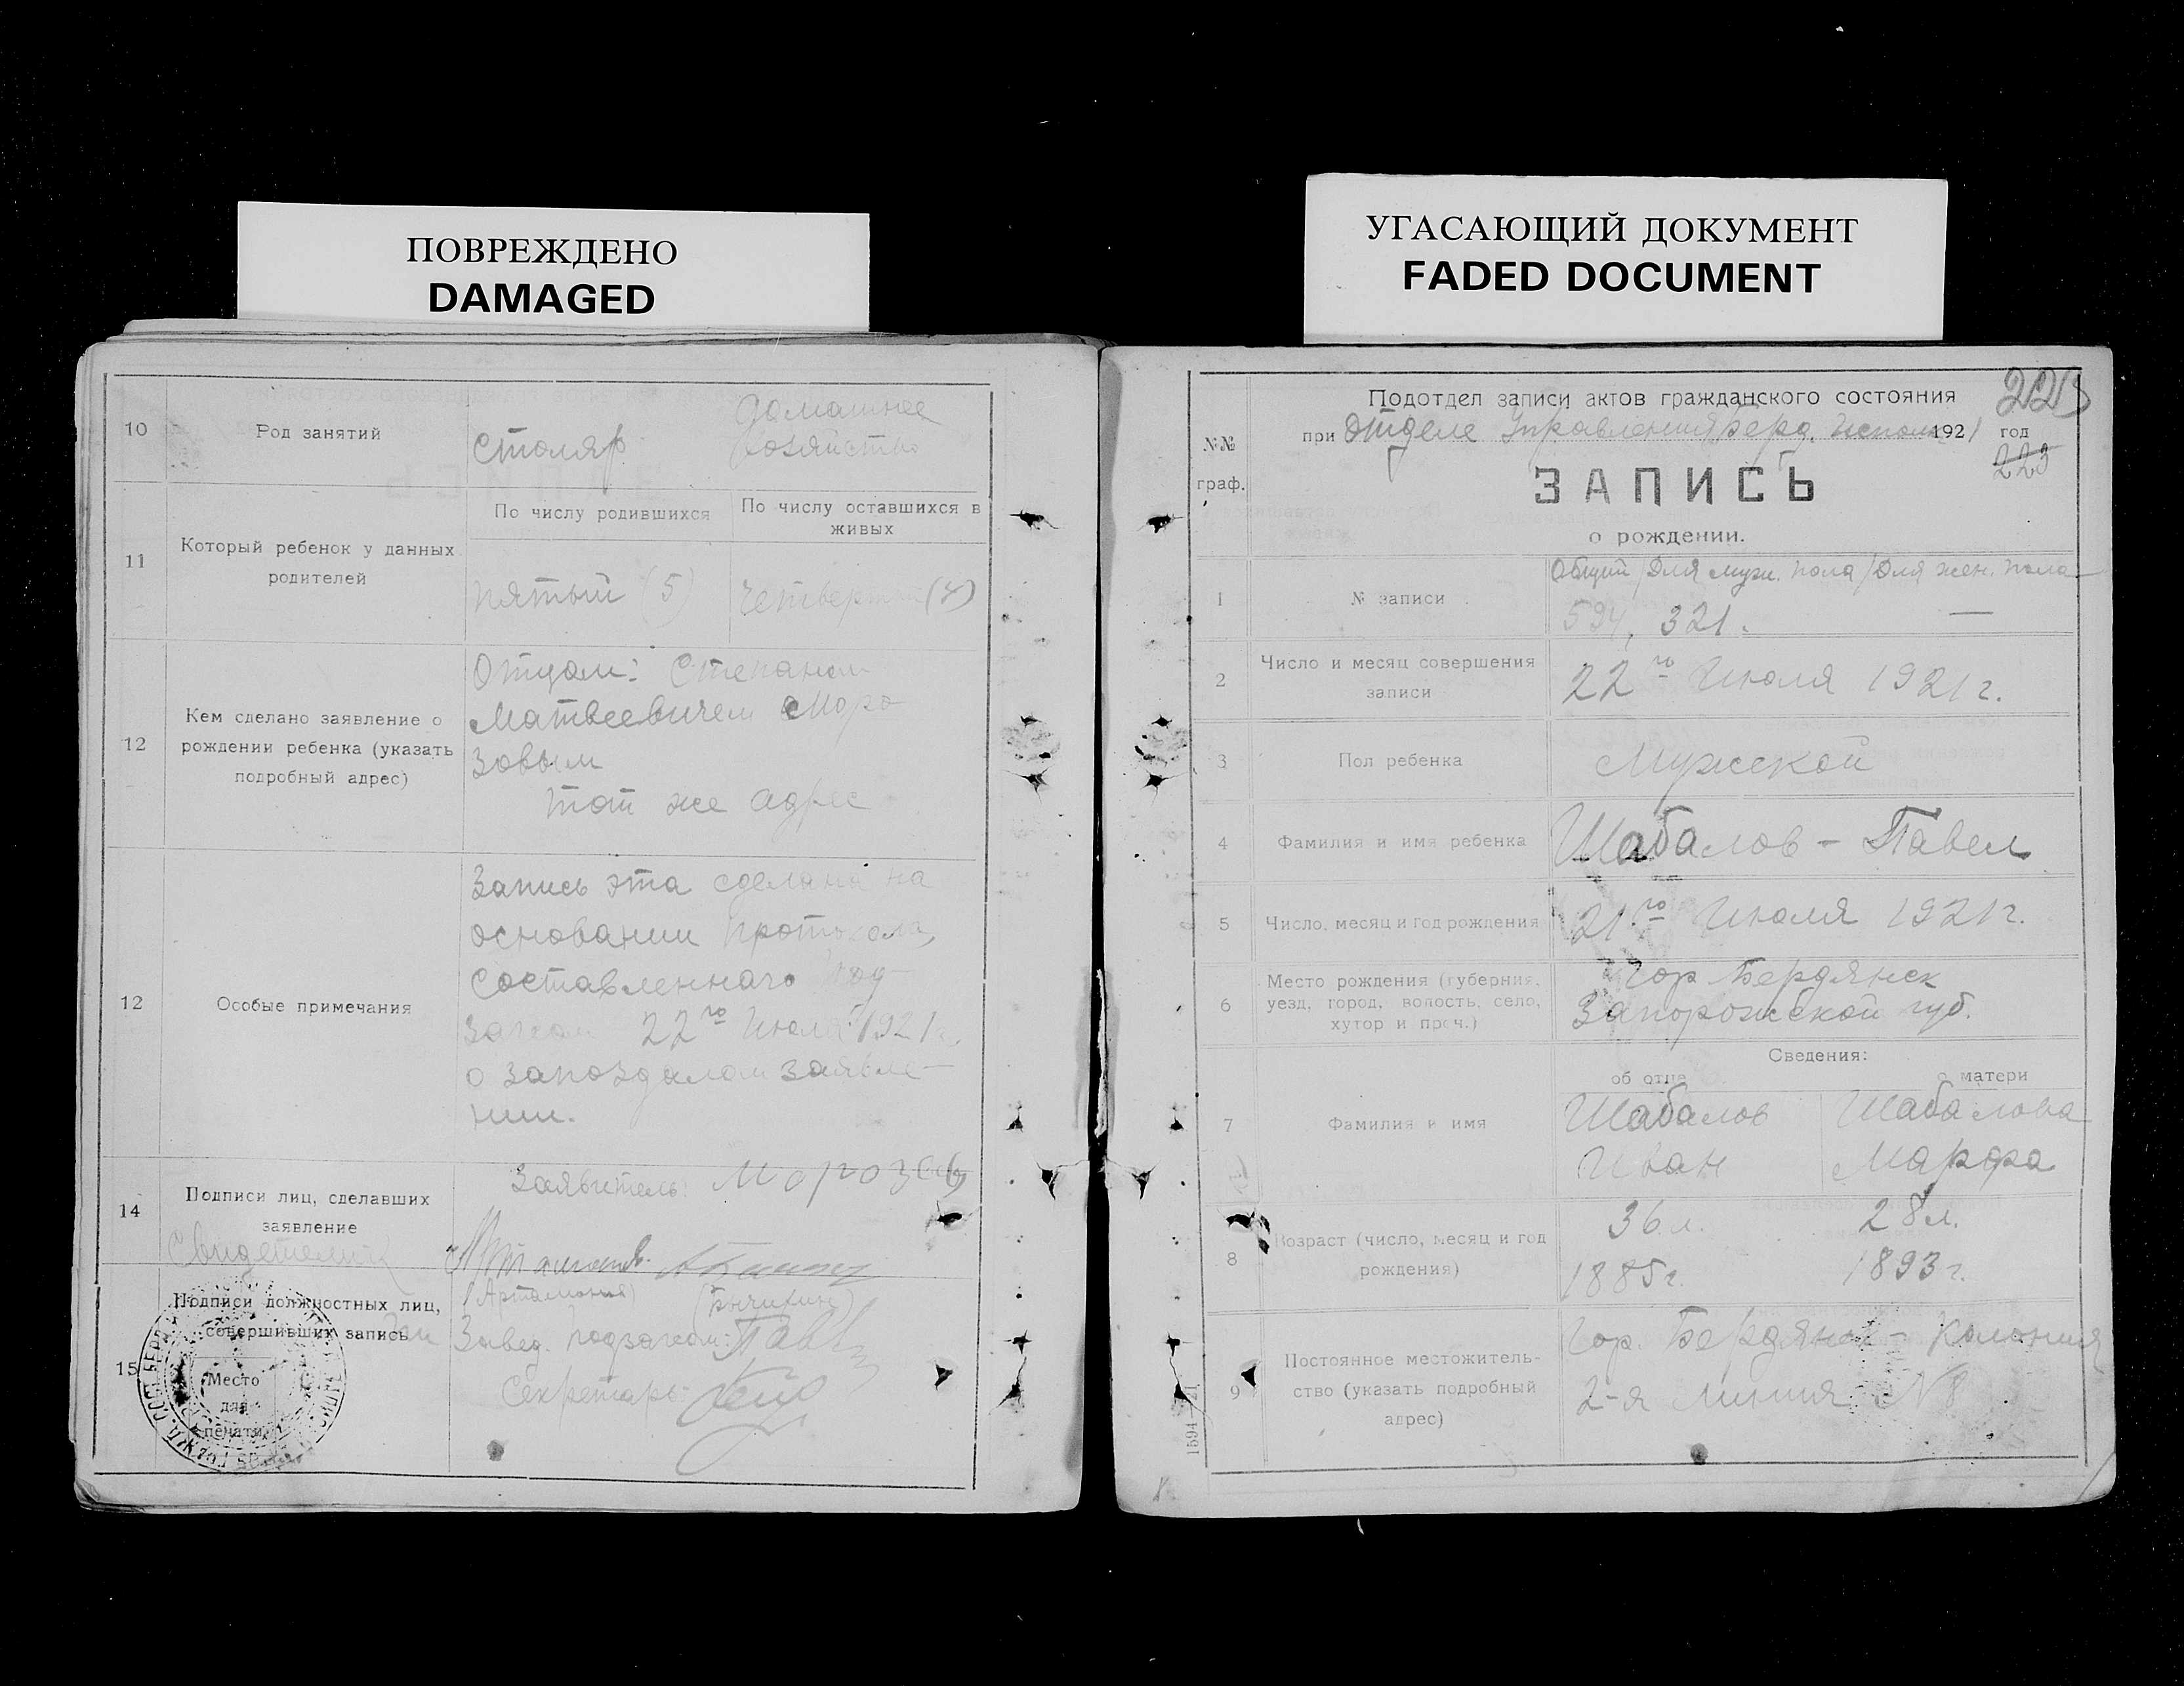 ПОВРЕЖДЕНО
DAMAGED
УГАСАЮЩИЙ ДОКУМЕНТ
FADED DOCUMENT
10
Род занятий
столяр
домашнее
хозяйство
11
Который ребенок у данных
родителей
По числу родившихся
По числу оставшихся в
живых
пятый (5)
четвертый (4)
12
Кем сделано заявление о
рождении ребенка (указать
подробный адрес)
Отцом: Степаном
Матвеевичем Моро
зовым
тот же адрес
12
Особые примечания
Запись эта сделана на
основании протокола,
составленнаго Под
загсом 22го Июля 1921 г.
о запоздалом заявле-
нии.
14
Подписи лиц, сделавших
заявление
Заявитель: Морозов
Свидетели
(Артамонов)
15
Подписи должностных лиц,
совершивших запись
Завед. подзагсом:
Секретарь
Место
для
печати
№№
граф.
Подотдел записи актов гражданского состояния
при Отделе Управления Берд. Исполк 1921 год
223
223
ЗАПИСЬ
о рождении.
1
№ записи
Общий / Для муж. пола / Для жен. пола
594, 321. —
2
Число и месяц совершения
записи
22го Июля 1921 г.
3
Пол ребенка
Мужской
4
Фамилия и имя ребенка
Шабалов - Павел
5
Число, месяц и год рождения
21го Июля 1921 г.
6
Место рождения (губерния,
уезд, город, волость, село,
хутор и проч.)
Гор Бердянск
Запорожской губ.
Сведения:
об отце
о матери
7
Фамилия и имя
Шабалов
Иван
Шабалова
Марфа
8
Возраст (число, месяц и год
рождения)
36 л.
1885 г.
28 л.
1893 г.
9
Постоянное местожитель-
ство (указать подробный
адрес)
Гор. Бердянск - Колония
2-я Линия № 8
1594—21